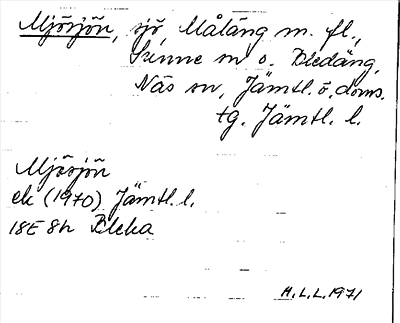 Mjösjön, sjö, Måläng m. fl.,
Sunne sn o. Bledäng,
Näs sn, Jämtl. ö. doms.
tg. Jämtl. l.
Mjösjön
ek (1970) Jämtl. l.
18E 8h Bleka
H.L.L. 1971